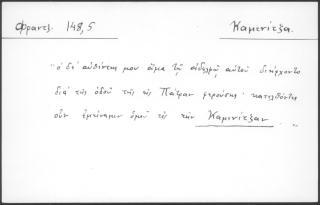 Φραντζ. 148,5 Καμενίτζα.
"ὁ δὲ αὐθέντης μου ἅμα τῇ ἀδελφῇ αὐτοῦ διήρχοντο
διὰ τῆς ὁδοῦ τῆς εἰς Πάτραν φερούσης· κατελθόντες
οὖν ἐμείναμεν ὁμοῦ εἰς τὴν Καμενίτζαν. "